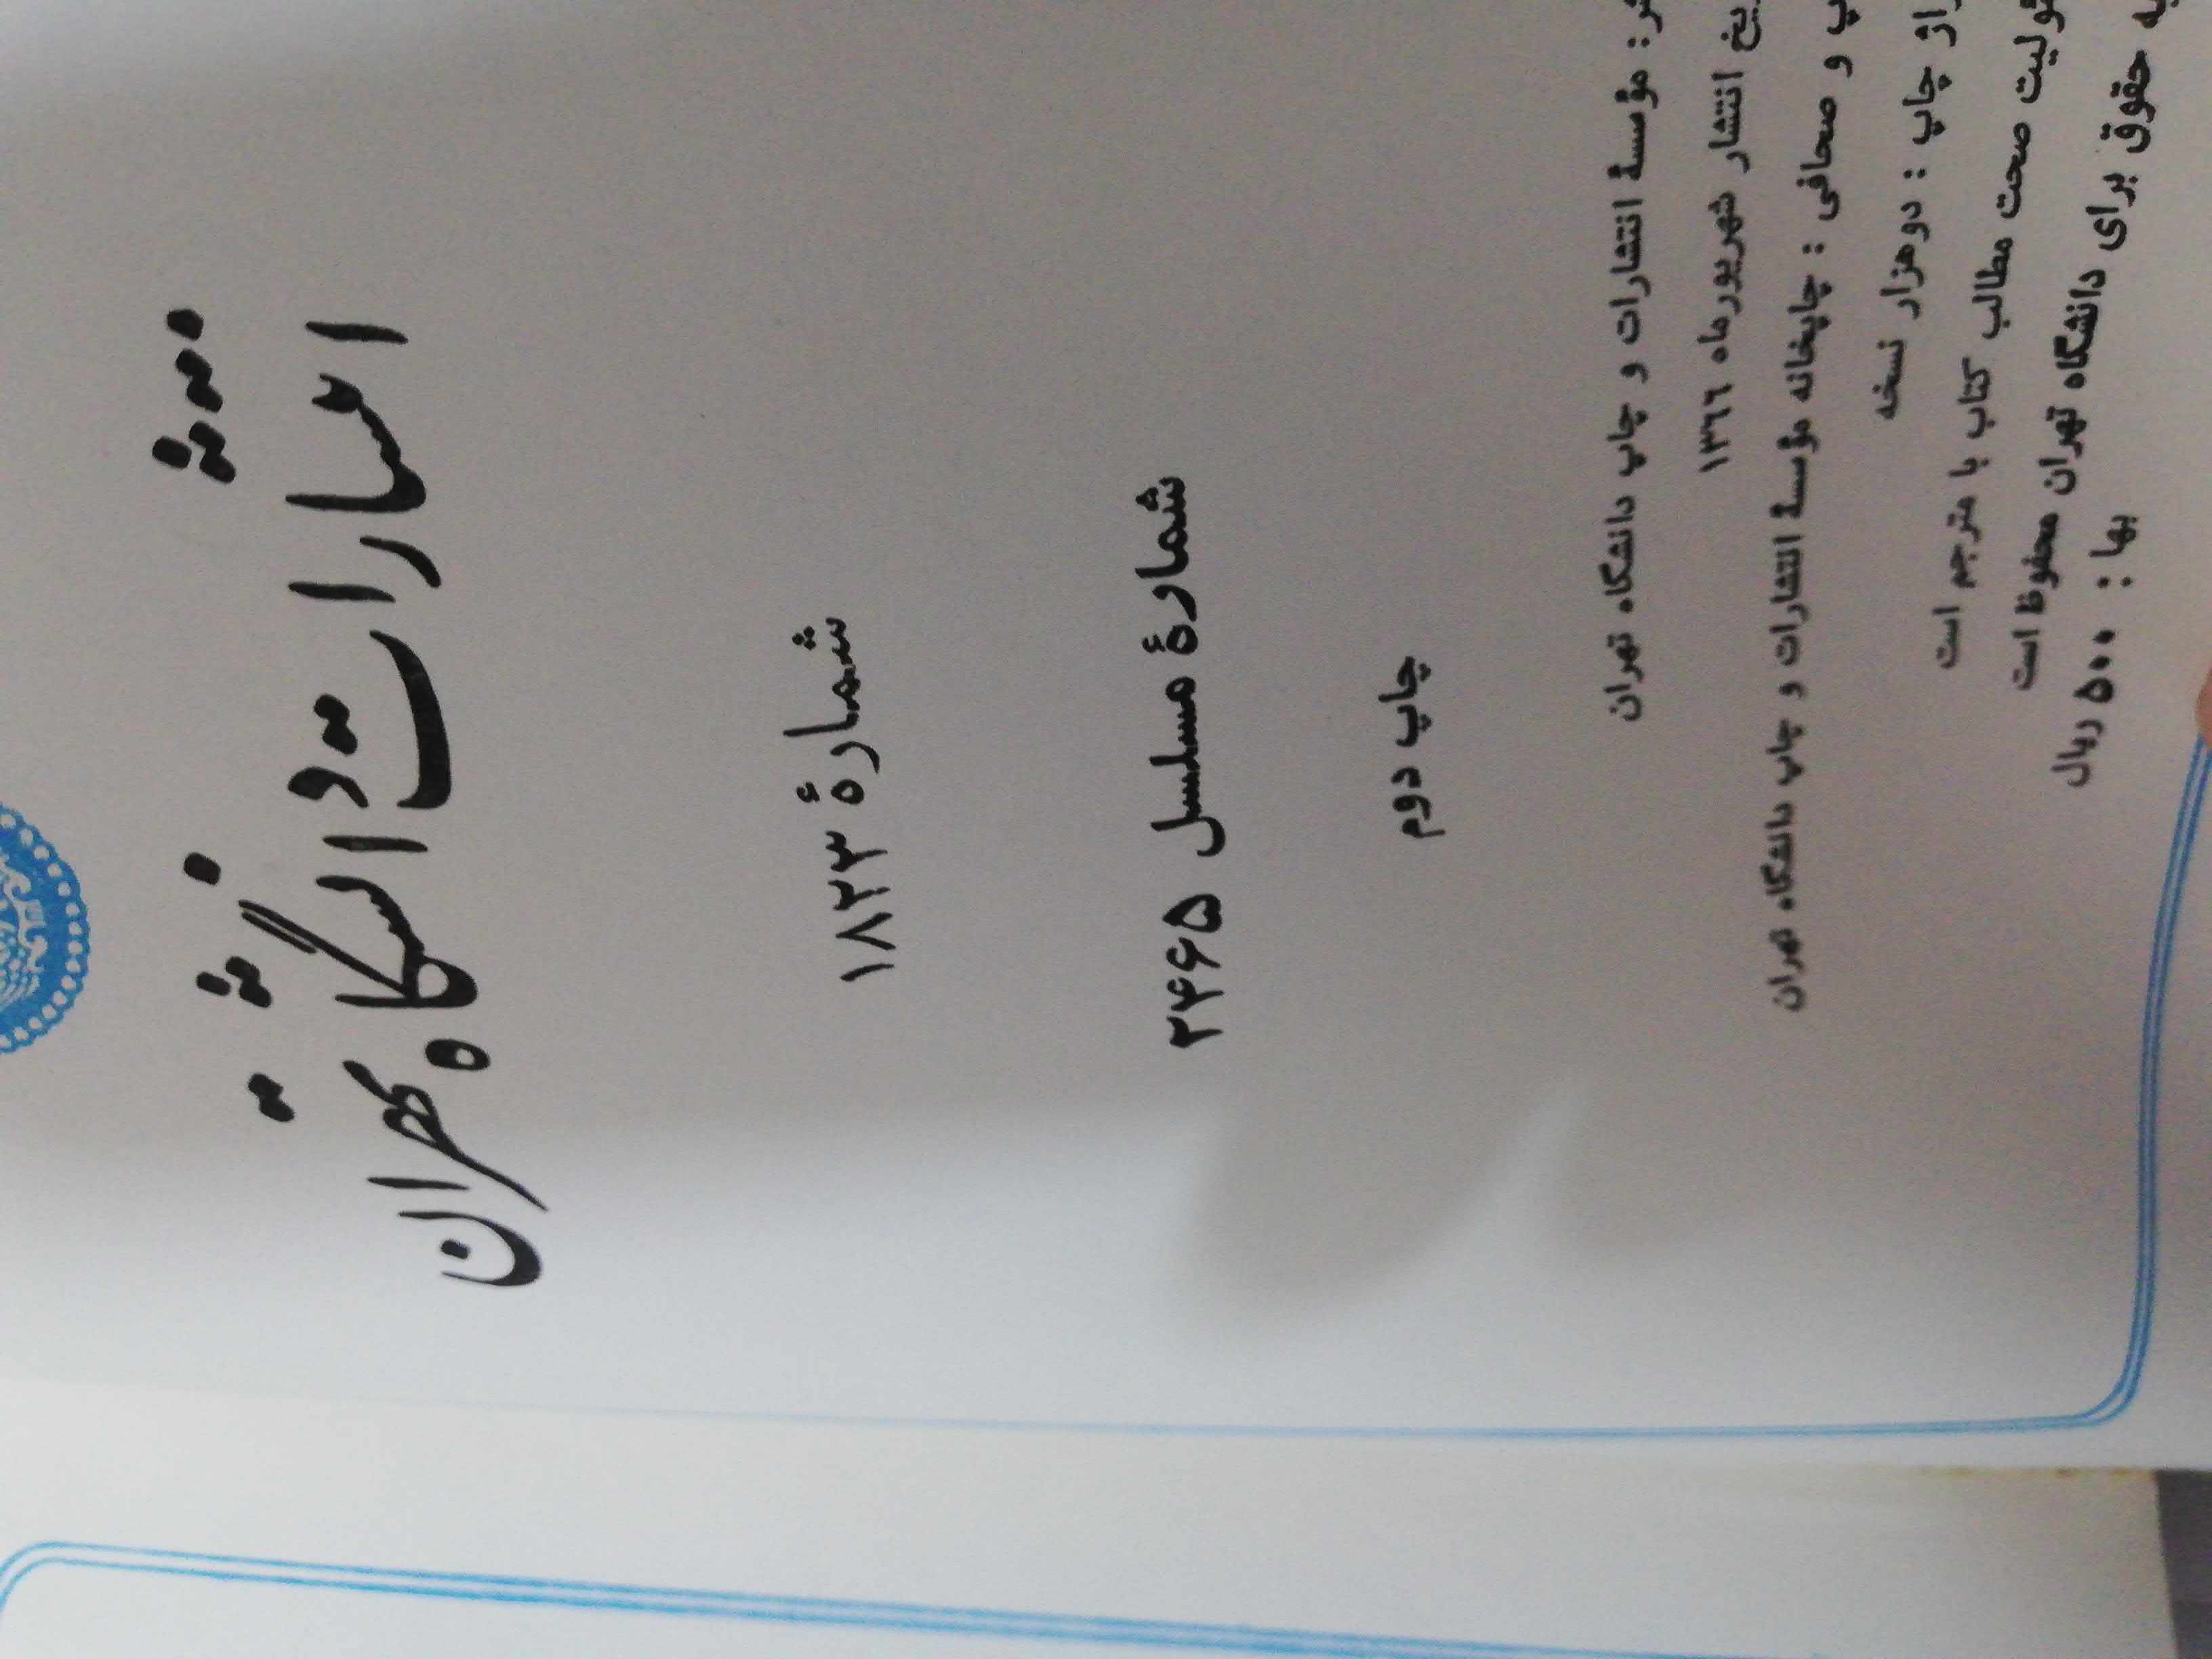 انتشارات دانشگاه تهران
شمارهٔ ۱۸۲۳
شمارهٔ مسلسل ۲۴۶۵
چاپ دوم
مؤسسهٔ انتشارات و چاپ دانشگاه تهران
انتشار شهریورماه ۱۳۶۶
و صحافی : چاپخانه مؤسسهٔ انتشارات و چاپ دانشگاه تهران
چاپ : دوهزار نسخه
صحت مطالب کتاب با مترجم است
حقوق برای دانشگاه تهران محفوظ است
بها : ۵۰۰ ریال